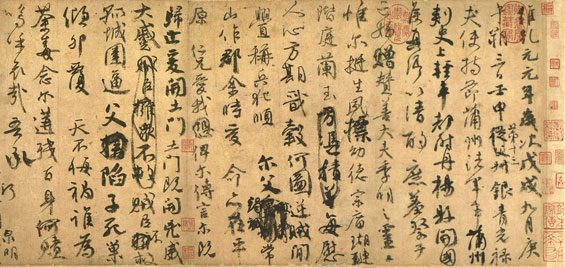 維乾元元年歲次戊戌九月庚
午朔三日壬申第十三叔銀青光祿
夫使持節蒲州諸軍事蒲州
刺史上輕車都尉丹楊縣開國
侯真卿以清酌庶羞祭于
亡姪贈贊善大夫季明之靈曰
惟爾挺生夙標幼德宗廟瑚璉
階庭蘭玉方憑積善每慰
人心方期戩穀何圖逆賊閒
釁稱兵犯順爾父竭誠常
山作郡余時受命亦在平
原仁兄愛我俾爾傳言爾既
歸止爰開土門土門既開凶威
大蹙賊臣擁眾不救賊臣不救
孤城圍逼父陷子死巢
傾卵覆天不悔禍誰為
荼毒念爾遘殘百身何贖
嗚乎哀哉吾承
泉明